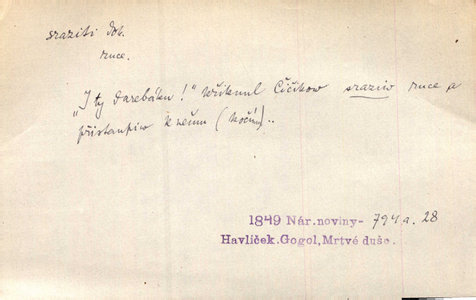 sraziti dok.
ruce.
„I ty darebáku!" vzkřiknul Čičikow sraziw ruce a
přistaupiw k němu (kočímu)..
1849 Nár.noviny- 794 a. 28
Havlíček.Gogol,Mrtvé duše.